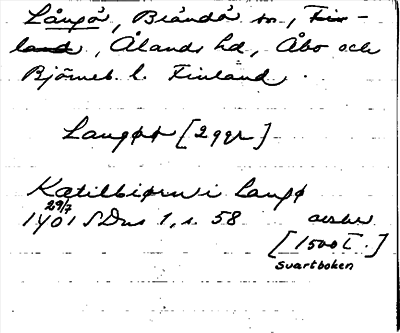 Långö, Brändö sn, Fin-
land, Ålands hd, Åbo och
Björneb. l. Finland.
Langøø [2 ggr]
Kætilbiørn i Langø
29/7
1401 SDns 1, s. 58 avskr
[1500 t.]
Svartboken